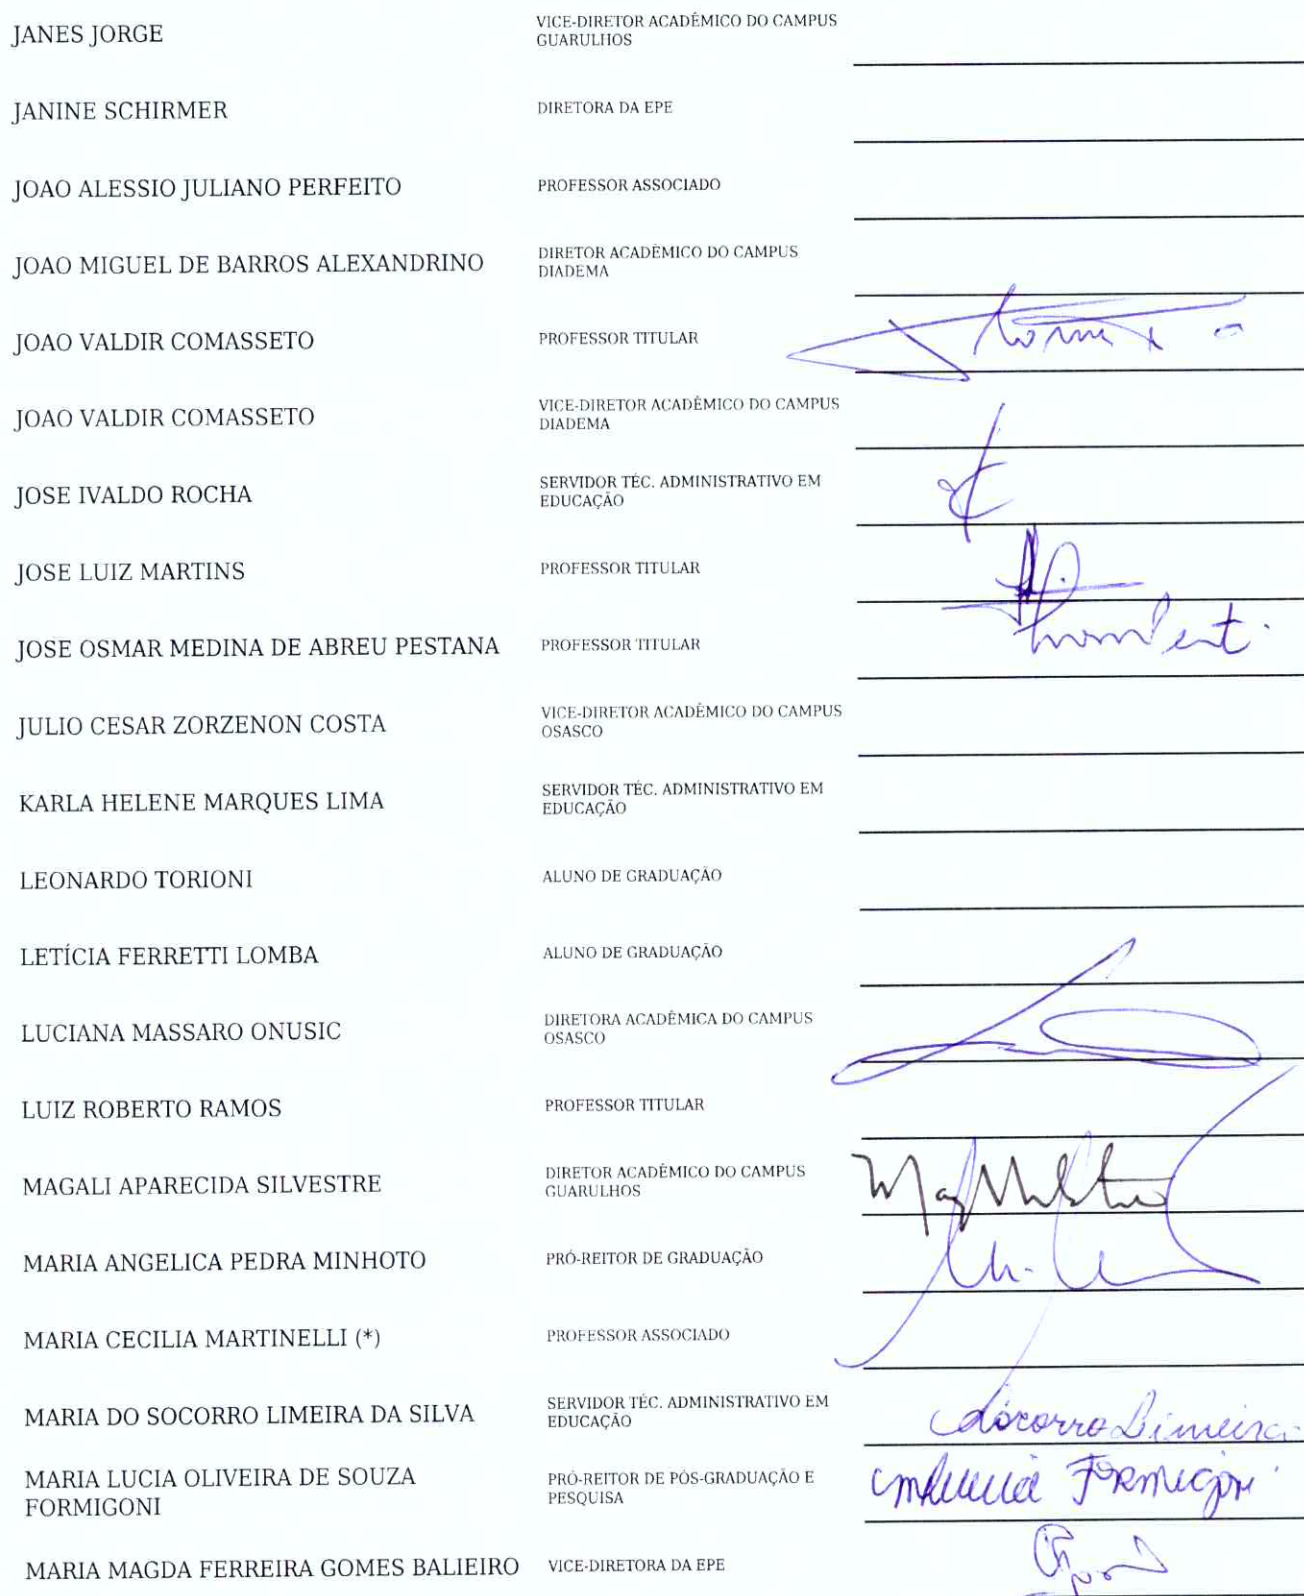 JANES JORGE
VICE-DIRETOR ACADÊMICO DO CAMPUS
GUARULHOS
JANINE SCHIRMER
DIRETORA DA EPE
JOAO ALESSIO JULIANO PERFEITO
PROFESSOR ASSOCIADO
JOAO MIGUEL DE BARROS ALEXANDRINO
DIRETOR ACADÊMICO DO CAMPUS
DIADEMA
JOAO VALDIR COMASSETO
PROFESSOR TITULAR
JOAO VALDIR COMASSETO
VICE-DIRETOR ACADÊMICO DO CAMPUS
DIADEMA
JOSE IVALDO ROCHA
SERVIDOR TÉC. ADMINISTRATIVO EM
EDUCAÇÃO
JOSE LUIZ MARTINS
PROFESSOR TITULAR
JOSE OSMAR MEDINA DE ABREU PESTANA
PROFESSOR TITULAR
JULIO CESAR ZORZENON COSTA
VICE-DIRETOR ACADÊMICO DO CAMPUS
OSASCO
KARLA HELENE MARQUES LIMA
SERVIDOR TÉC. ADMINISTRATIVO EM
EDUCAÇÃO
LEONARDO TORIONI
ALUNO DE GRADUAÇÃO
LETÍCIA FERRETTI LOMBA
ALUNO DE GRADUAÇÃO
LUCIANA MASSARO ONUSIC
DIRETORA ACADÊMICA DO CAMPUS
OSASCO
LUIZ ROBERTO RAMOS
PROFESSOR TITULAR
MAGALI APARECIDA SILVESTRE
DIRETOR ACADÊMICO DO CAMPUS
GUARULHOS
MARIA ANGELICA PEDRA MINHOTO
PRÓ-REITOR DE GRADUAÇÃO
MARIA CECILIA MARTINELLI (*)
PROFESSOR ASSOCIADO
MARIA DO SOCORRO LIMEIRA DA SILVA
SERVIDOR TÉC. ADMINISTRATIVO EM
EDUCAÇÃO
Socorro Limeira
MARIA LUCIA OLIVEIRA DE SOUZA
FORMIGONI
PRÓ-REITOR DE PÓS-GRADUAÇÃO E
PESQUISA
Formigoni
MARIA MAGDA FERREIRA GOMES BALIEIRO
VICE-DIRETORA DA EPE